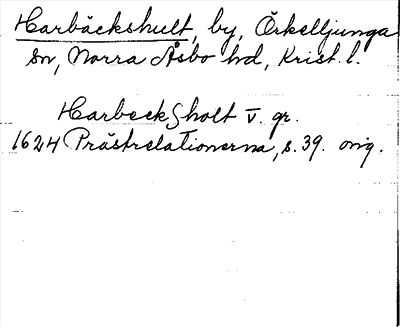 Harbäckshult, by, Örkelljunga
sn, Norra Åsbo hd, Krist. l.
Harbecksholt v. gr.
1624 Prästrelationerna, s. 39. orig.